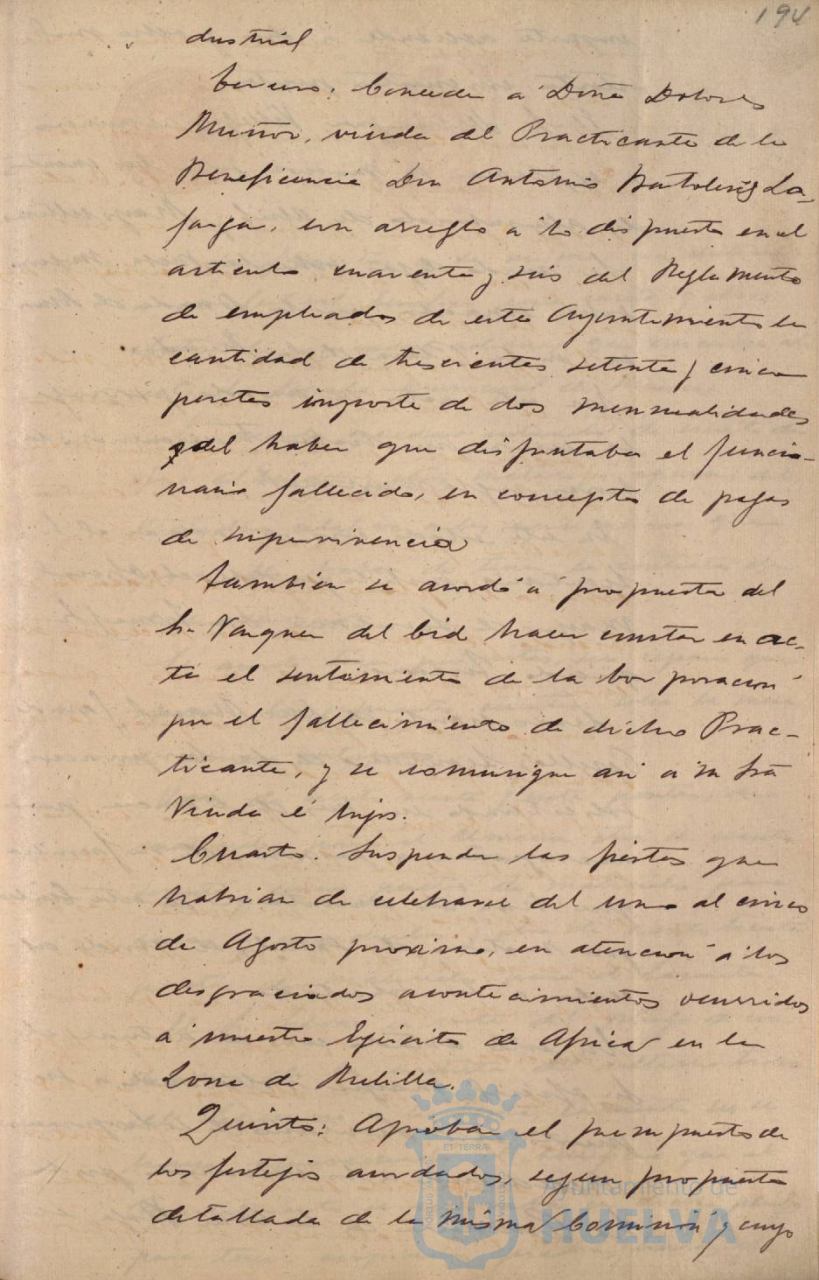 194
dustrial
Tercero: Conceder a Doña Dolores
Muñoz, viuda del Practicante de la
Beneficencia Don Antonio Bartolomé La-
farga, con arreglo a lo dispuesto en el
articulo cuarenta y seis del Reglamento
de empleados de este Ayuntamiento la
cantidad de trescientas setenta y cinco
pesetas importe de dos mensualidades
del haber que disfrutaba el funcio-
nario fallecido, en concepto de pagas
de supervivencia
Tambien se acordó a propuesta del
Sr. Vazquez del Cid hacer constar en ac-
ta el sentimiento de la Corporacion
por el fallecimiento de dicho Prac-
ticante, y se comunique asi a su Sra
Viuda é hijos.
Cuarto. Suspender las fiestas que
habian de celebrarse del uno al cinco
de Agosto proximo, en atencion a los
desgraciados acontecimientos ocurridos
a nuestro Ejercito de Africa en la
Zona de Melilla.
Quinto: Aprobar el presupuesto de
los festejos acordados, segun propuesta
detallada de la misma Comision y cuyo
Ayuntamiento de
HUELVA